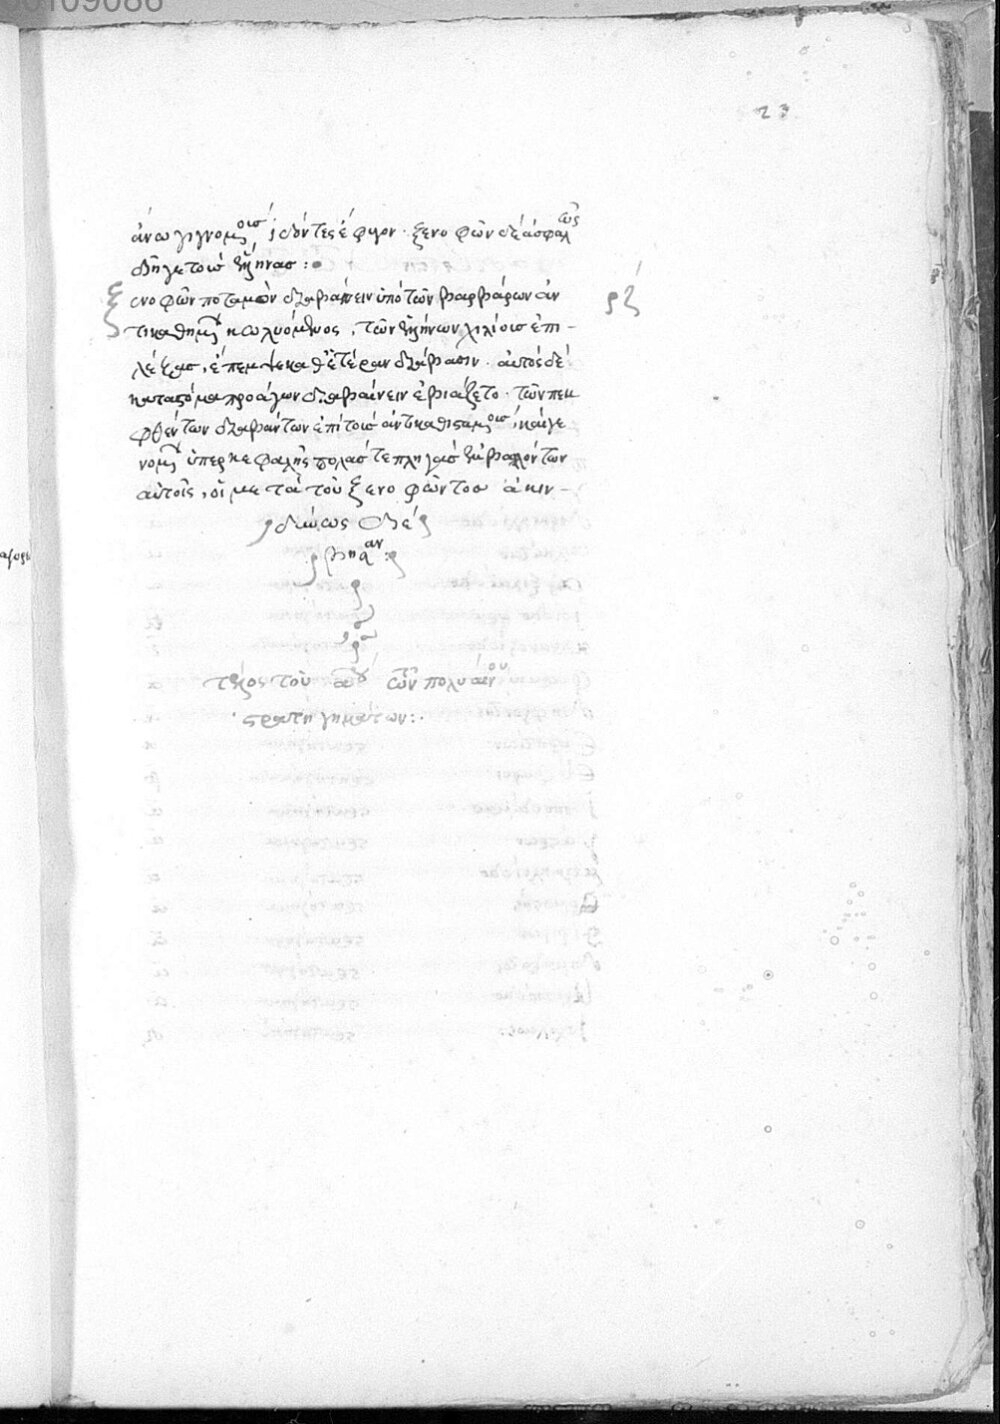 23
ἄνω γιγνομένοις, ἰδόντες ἔφυγον. ξενοφῶν δὲ ἀσφαλῶς
διῆγε τοὺς ἕλληνας:
ξενοφῶν ποταμὸν διαβαίνειν ὑπὸ τῶν βαρβάρων ἀν
τικαθημένων κωλυόμενος, τῶν ἑλλήνων χιλίους ἐπι-
λέξας, ἔπεμψε καθ' ἑτέραν διάβασιν. αὐτὸς δὲ
κατὰ στόμα προάγων διαβαίνειν ἐβιάζετο. τῶν πεμ
φθέντων διαβάντων ἐπὶ τοὺς ἀντικαθισταμένους, καὶ γε
νομένων ὑπὲρ κεφαλῆς πολλάς τε πληγὰς ἐμβαλόντων
αὐτοῖς, οἱ μετὰ τοῦ ξενοφῶντος ἀκιν-
δύνως διέ
βησαν:
τέλος τοῦ αου τῶν πολυαίνου
στρατηγημάτων:.